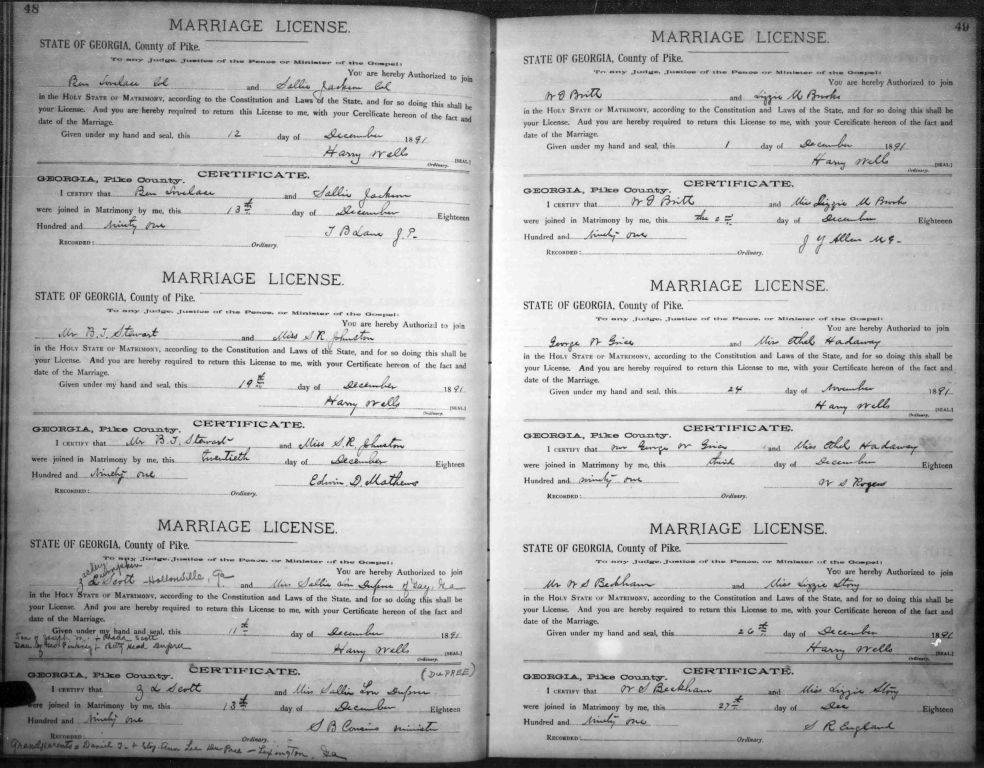 48
MARRIAGE LICENSE.
STATE OF GEORGIA, County of Pike.
To any Judge, Justice of the Peace, or Minister of the Gospel:
You are hereby Authorized to join
Ben Lovelace Col and Sallie Jackson Col
in the HOLY STATE OF MATRIMONY, according to the Constitution and Laws of the State, and for so doing this shall be
your License. And you are hereby required to return this License to me, with your Certificate hereon of the fact and
date of the Marriage.
Given under my hand and seal, this 12 day of December 1891
Harry Wells [SEAL]
Ordinary.
CERTIFICATE.
GEORGIA, Pike County.
I CERTIFY that Ben Lovelace and Sallie Jackson
were joined in Matrimony by me, this 13th day of December Eighteen
Hundred and Ninety one T B Lane J.P.
RECORDED: Ordinary.
MARRIAGE LICENSE.
STATE OF GEORGIA, County of Pike.
To any Judge, Justice of the Peace, or Minister of the Gospel:
You are hereby Authorized to join
Mr B. T. Stewart and Miss S R Johnston
in the HOLY STATE OF MATRIMONY, according to the Constitution and Laws of the State, and for so doing this shall be
your License. And you are hereby required to return this License to me, with your Certificate hereon of the fact and
date of the Marriage.
Given under my hand and seal, this 19th day of December 1891
Harry Wells [SEAL]
Ordinary.
CERTIFICATE.
GEORGIA, Pike County.
I CERTIFY that Mr B. T. Stewart and Miss S. R. Johnston
were joined in Matrimony by me, this twentieth day of December Eighteen
Hundred and Ninety one Edwin D. Mathews
RECORDED: Ordinary.
MARRIAGE LICENSE.
STATE OF GEORGIA, County of Pike.
To any Judge, Justice of the Peace, or Minister of the Gospel:
You are hereby Authorized to join
Scott Hollonville, Ga and Miss Sallie Lou Dupree of Gay, Ga
in the HOLY STATE OF MATRIMONY, according to the Constitution and Laws of the State, and for so doing this shall be
your License. And you are hereby required to return this License to me, with your Certificate hereon of the fact and
date of the Marriage.
Given under my hand and seal, this 11th day of December 1891
Son of Joseph + Rhoda Scott
Dau of Pinkney + Betty Head Dupree
Harry Wells [SEAL]
Ordinary.
(DUPREE)
CERTIFICATE.
GEORGIA, Pike County.
I CERTIFY that Z L Scott and Miss Sallie Lou Dupree
were joined in Matrimony by me, this 13th day of December Eighteen
Hundred and Ninety one S B Cousins minister
RECORDED: Ordinary.
Grandparents = Daniel + Ann Lee Du Pree - Lexington, Ga
49
MARRIAGE LICENSE.
STATE OF GEORGIA, County of Pike.
To any Judge, Justice of the Peace, or Minister of the Gospel:
You are hereby Authorized to join
Britt and Lizzie M Brooks
in the HOLY STATE OF MATRIMONY, according to the Constitution and Laws of the State, and for so doing this shall be
your License. And you are hereby required to return this License to me, with your Certificate hereon of the fact and
date of the Marriage.
Given under my hand and seal, this 1 day of December 1891
Harry Wells [SEAL]
Ordinary.
CERTIFICATE.
GEORGIA, Pike County.
I CERTIFY that Britt and Miss Lizzie M Brooks
were joined in Matrimony by me, this the day of December Eighteen
Hundred and Ninety one J Y Allen M G.
RECORDED: Ordinary.
MARRIAGE LICENSE.
STATE OF GEORGIA, County of Pike.
To any Judge, Justice of the Peace, or Minister of the Gospel:
You are hereby Authorized to join
George W Grier and Miss Ethel Hadaway
in the HOLY STATE OF MATRIMONY, according to the Constitution and Laws of the State, and for so doing this shall be
your License. And you are hereby required to return this License to me, with your Certificate hereon of the fact and
date of the Marriage.
Given under my hand and seal, this 24 day of November 1891
Harry Wells [SEAL]
Ordinary.
CERTIFICATE.
GEORGIA, Pike County.
I CERTIFY that Mr George W Grier and Miss Ethel Hadaway
were joined in Matrimony by me, this third day of December Eighteen
Hundred and ninety one W S Rogers
RECORDED: Ordinary.
MARRIAGE LICENSE.
STATE OF GEORGIA, County of Pike.
To any Judge, Justice of the Peace, or Minister of the Gospel:
You are hereby Authorized to join
Mr W S Beckham and Miss Lizzie Story
in the HOLY STATE OF MATRIMONY, according to the Constitution and Laws of the State, and for so doing this shall be
your License. And you are hereby required to return this License to me, with your Certificate hereon of the fact and
date of the Marriage.
Given under my hand and seal, this 26th day of December 1891
Harry Wells [SEAL]
Ordinary.
CERTIFICATE.
GEORGIA, Pike County.
I CERTIFY that W S Beckham and Miss Lizzie Story
were joined in Matrimony by me, this 27th day of Dec Eighteen
Hundred and Ninety one S R England
RECORDED: Ordinary.